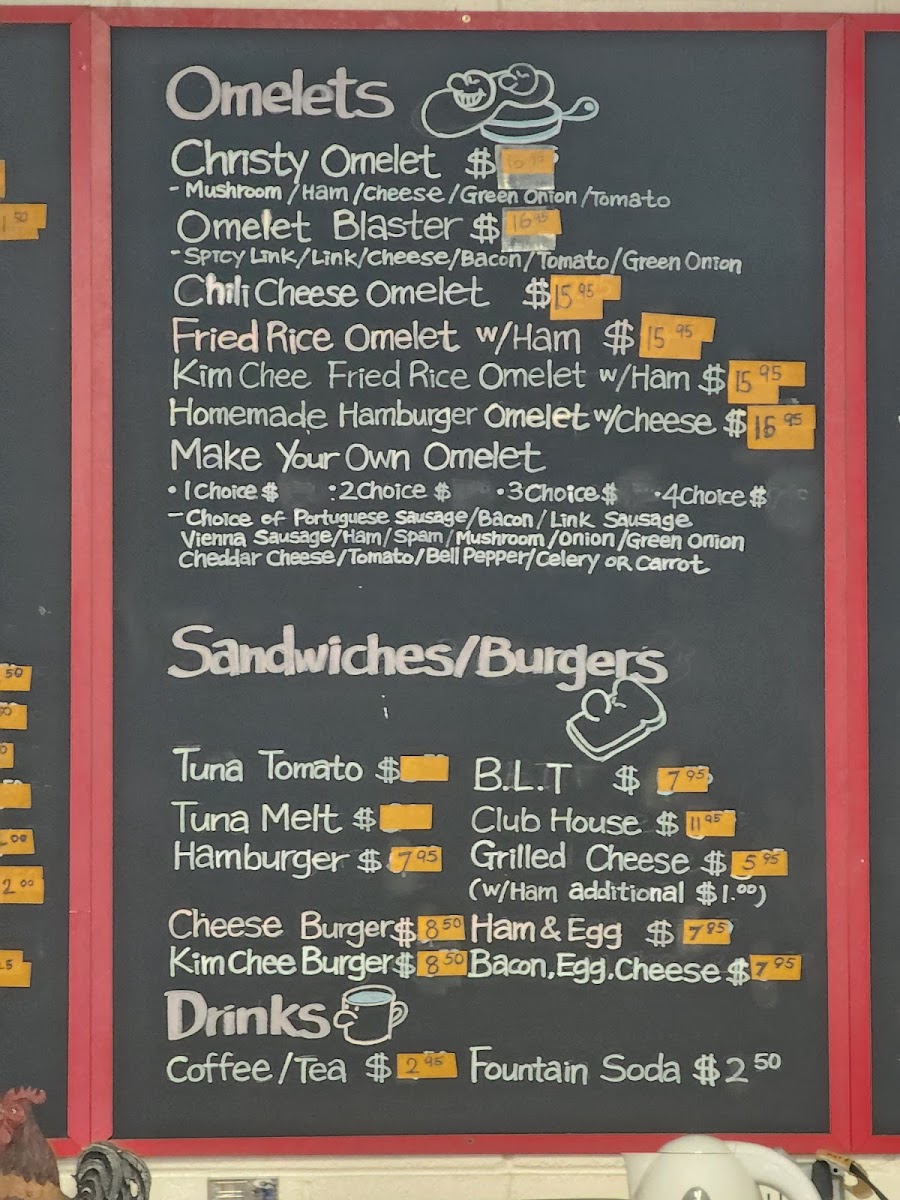 Omelets
Christy Omelet $
- Mushroom/Ham/Cheese/Green Onion/Tomato
Omelet Blaster $ 16 95
- Spicy Link/Link/Cheese/Bacon/Tomato/Green Onion
Chili Cheese Omelet $ 15 95
Fried Rice Omelet w/Ham $ 15 95
Kim Chee Fried Rice Omelet w/Ham $ 15 95
Homemade Hamburger Omelet w/Cheese $ 16 95
Make Your Own Omelet
• 1 Choice $ : 2 Choice $ • 3 Choice $ • 4 Choice $
- Choice of Portuguese Sausage/Bacon/Link Sausage
Vienna Sausage/Ham/Spam/Mushroom/Onion/Green Onion
Cheddar Cheese/Tomato/Bell Pepper/Celery OR Carrot
Sandwiches/Burgers
Tuna Tomato $
B.L.T $ 7 95
Tuna Melt $
Club House $ 11 95
Hamburger $ 7.95
Grilled Cheese $ 5 95
(w/Ham additional $1.00)
Cheese Burger $ 8 50
Ham & Egg $ 7 95
Kim Chee Burger $ 8 50
Bacon, Egg, Cheese $ 7 95
Drinks
Coffee/Tea $ 2 95
Fountain Soda $ 2 50
1 50
50
2 00